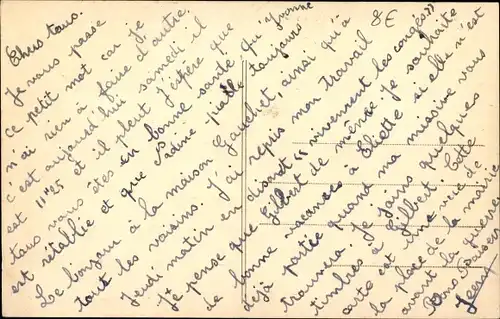 Chers tous.
Je vous passe
ce petit mot car je
n'ai rien à faire d'autre.
c'est aujourd'hui samedi il
est 11h25 et il pleut j'espère que
tous vous êtes en bonne santé qu'Yvonne
est rétablie et que piaille toujours
Le bonjour à la maison Gauchet, ainsi qu'à
tout les voisins. J'ai repris mon travail
Jeudi matin en disant "vivement les congés"
Je pense que Gilbert de même. Je souhaite
de bonne vacances à Eliette si elle n'est
déjà partie quand ma missive vous
trouvera. Je joins quelques
timbres à Gilbert. Cette
carte est une vue de
la place de la mairie
avant la guerre
Bons Baisers
8€